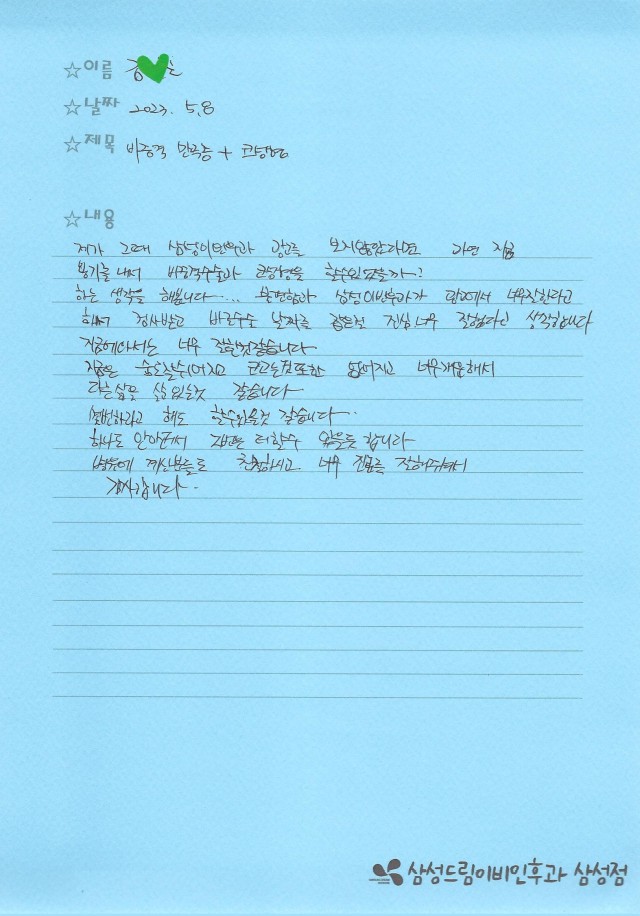 ☆이름
☆날짜 2023. 5.8
☆제목 비중격 만곡증 + 코성형
☆내용
제가 그때 삼성이비인후과 광고를 보지않았다면 과연 지금
용기를내서 비중격수술과 코성형을 할수있었을까?
하는 생각을 해봅니다..... 불편함과 삼성이비인후과가 광고에서 너무잘한다고
해서 검사받고 바로수술 날짜를 잡은것 진심 너무 잘했다고 생각합니다
지금에와서는 너무 잘한것같습니다
지금은 숨도잘쉬어지고 코고는것또한 없어지고 너무개운해서
다른삶을 살고있는것 같습니다
해도 할수있을것 같습니다..
하나도 안아파서 더할수 있을듯 합니다
병원에 계신분들도 친절하시고 너무 진료를 잘해주셔서
감사합니다.
삼성드림이비인후과 삼성점